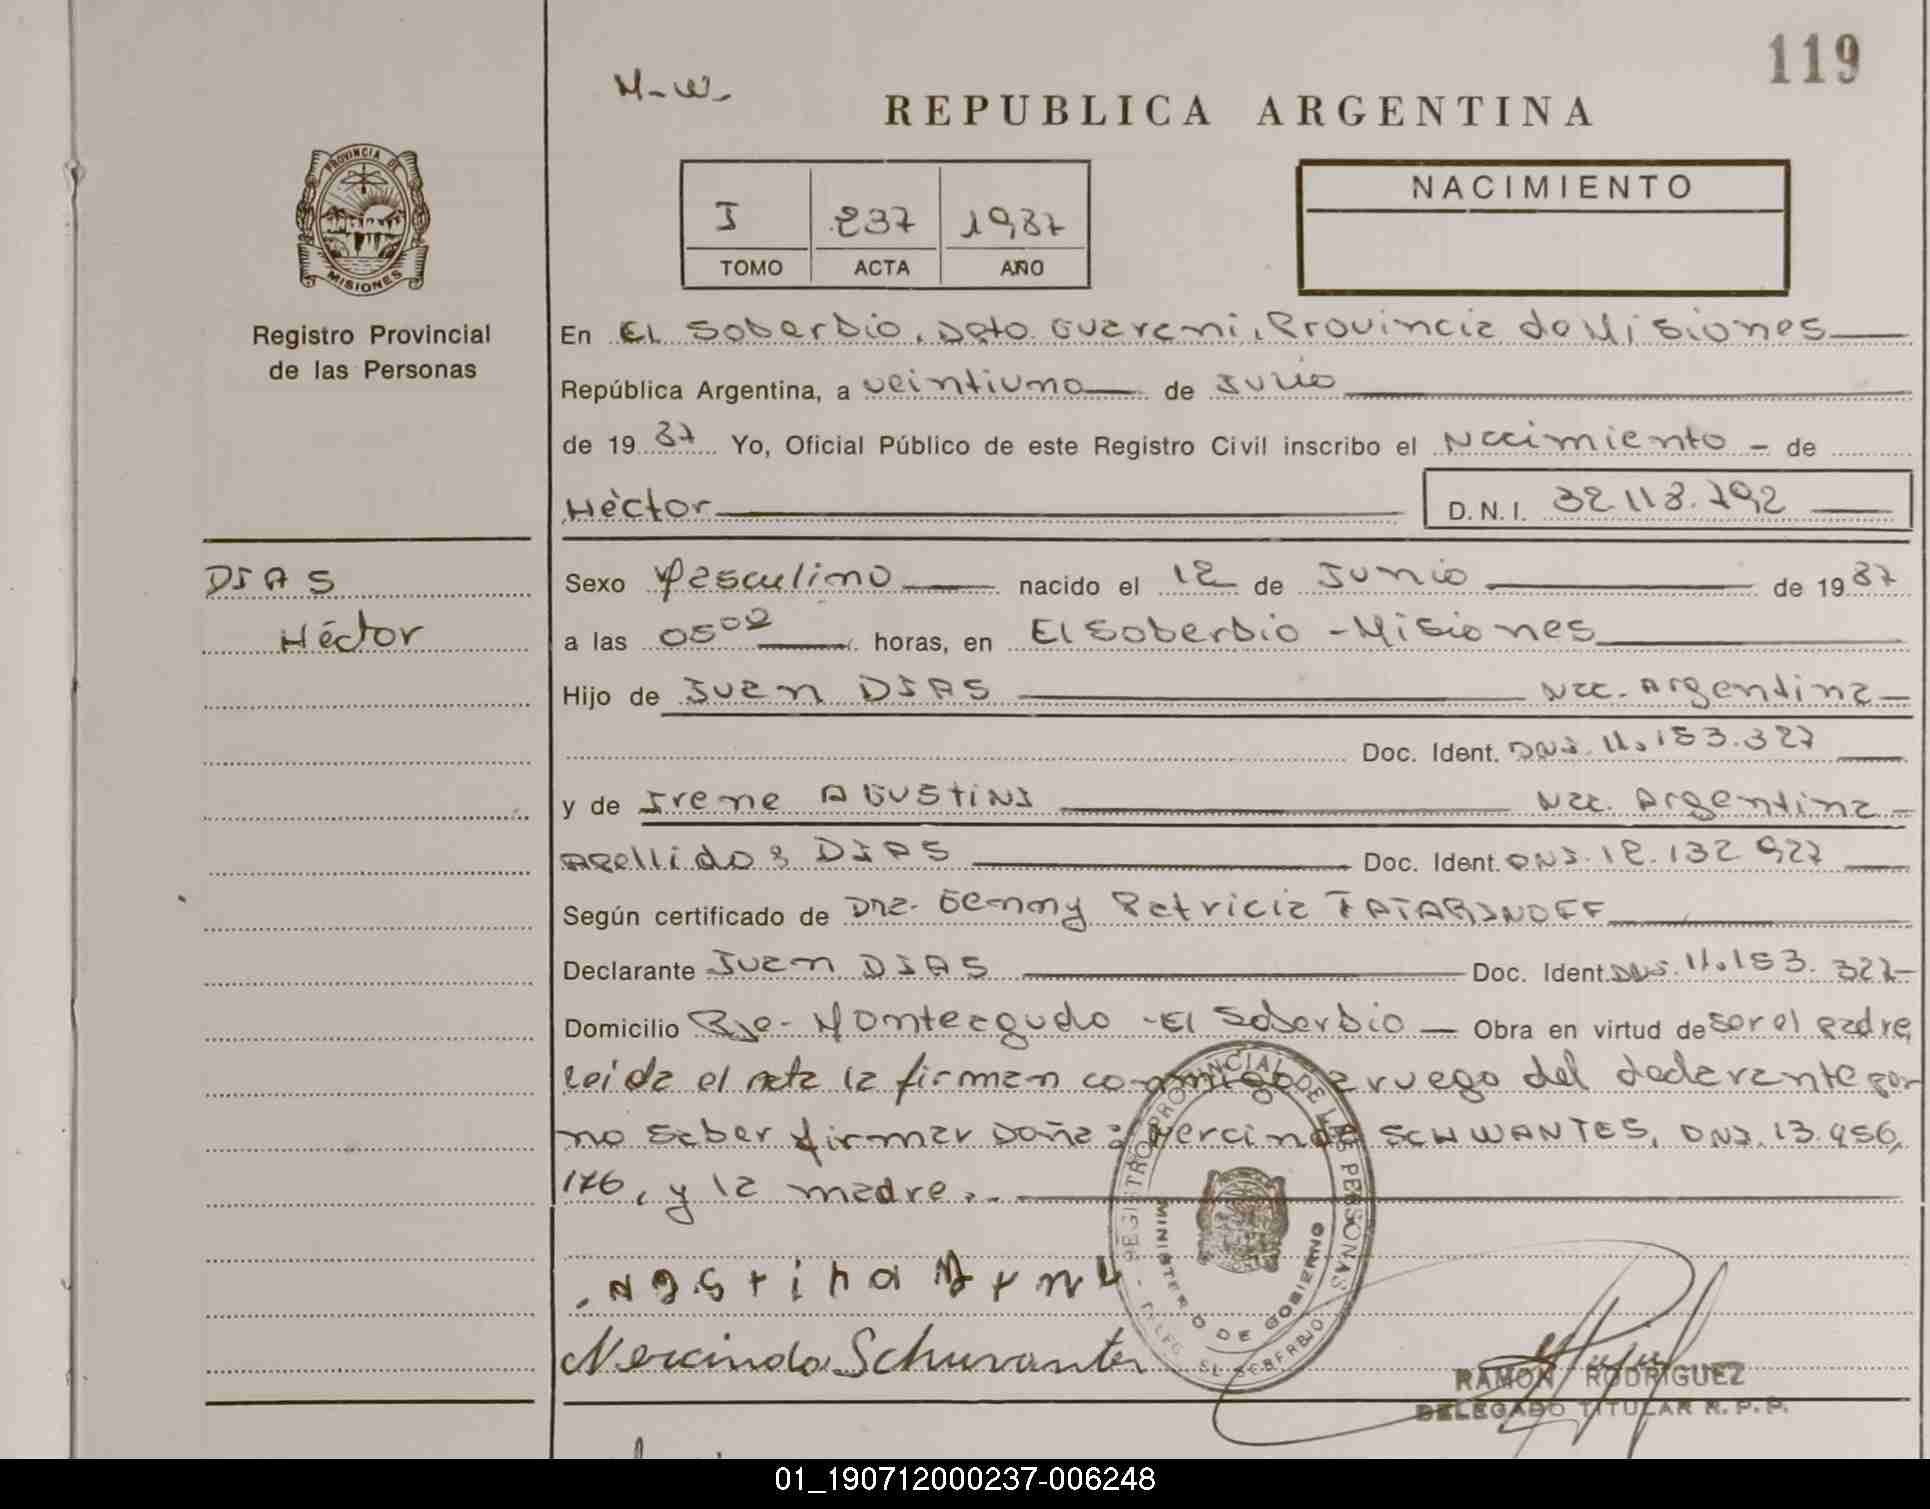 119
M-W-
REPUBLICA ARGENTINA
PROVINCIA DE
MISIONES
Registro Provincial
de las Personas
I 237 1987
TOMO ACTA AÑO
NACIMIENTO
En EL Soberbio, Dpto. Guarani, Provincia de Misiones
República Argentina, a veintiuno de Julio
de 1987 Yo, Oficial Público de este Registro Civil inscribo el Nacimiento - de
Hèctor
D.N.I. 32.118.792
DIAS
Héctor
Sexo Masculino nacido el 12 de Junio de 1987
a las 05:00 horas, en El Soberbio - Misiones
Hijo de Juan DIAS Nac. Argentina
Doc. Ident. DNI. 11.153.327
y de Irene AGUSTINI Nac. Argentina
Apellido: DIAS Doc. Ident. DNI. 12.132.927
Según certificado de Dra. Genny Patricia TATARINOFF
Declarante Juan DIAS Doc. Ident. DNI. 11.153.327
Domicilio Pje. Monteagudo - El Soberbio Obra en virtud de ser el padre,
leida el acta la firman conmigo a ruego del declarante por
no saber firmar Doña: Nercinda SCHWANTES, DNI. 13.956.
176, y la madre..
Nercinda Schwantes
REGISTRO PROVINCIAL DE LAS PERSONAS
MINISTERIO DE GOBIERNO
DELEG. EL SOBERBIO
RAMON RODRIGUEZ
DELEGADO TITULAR R.P.P.
01_190712000237-006248